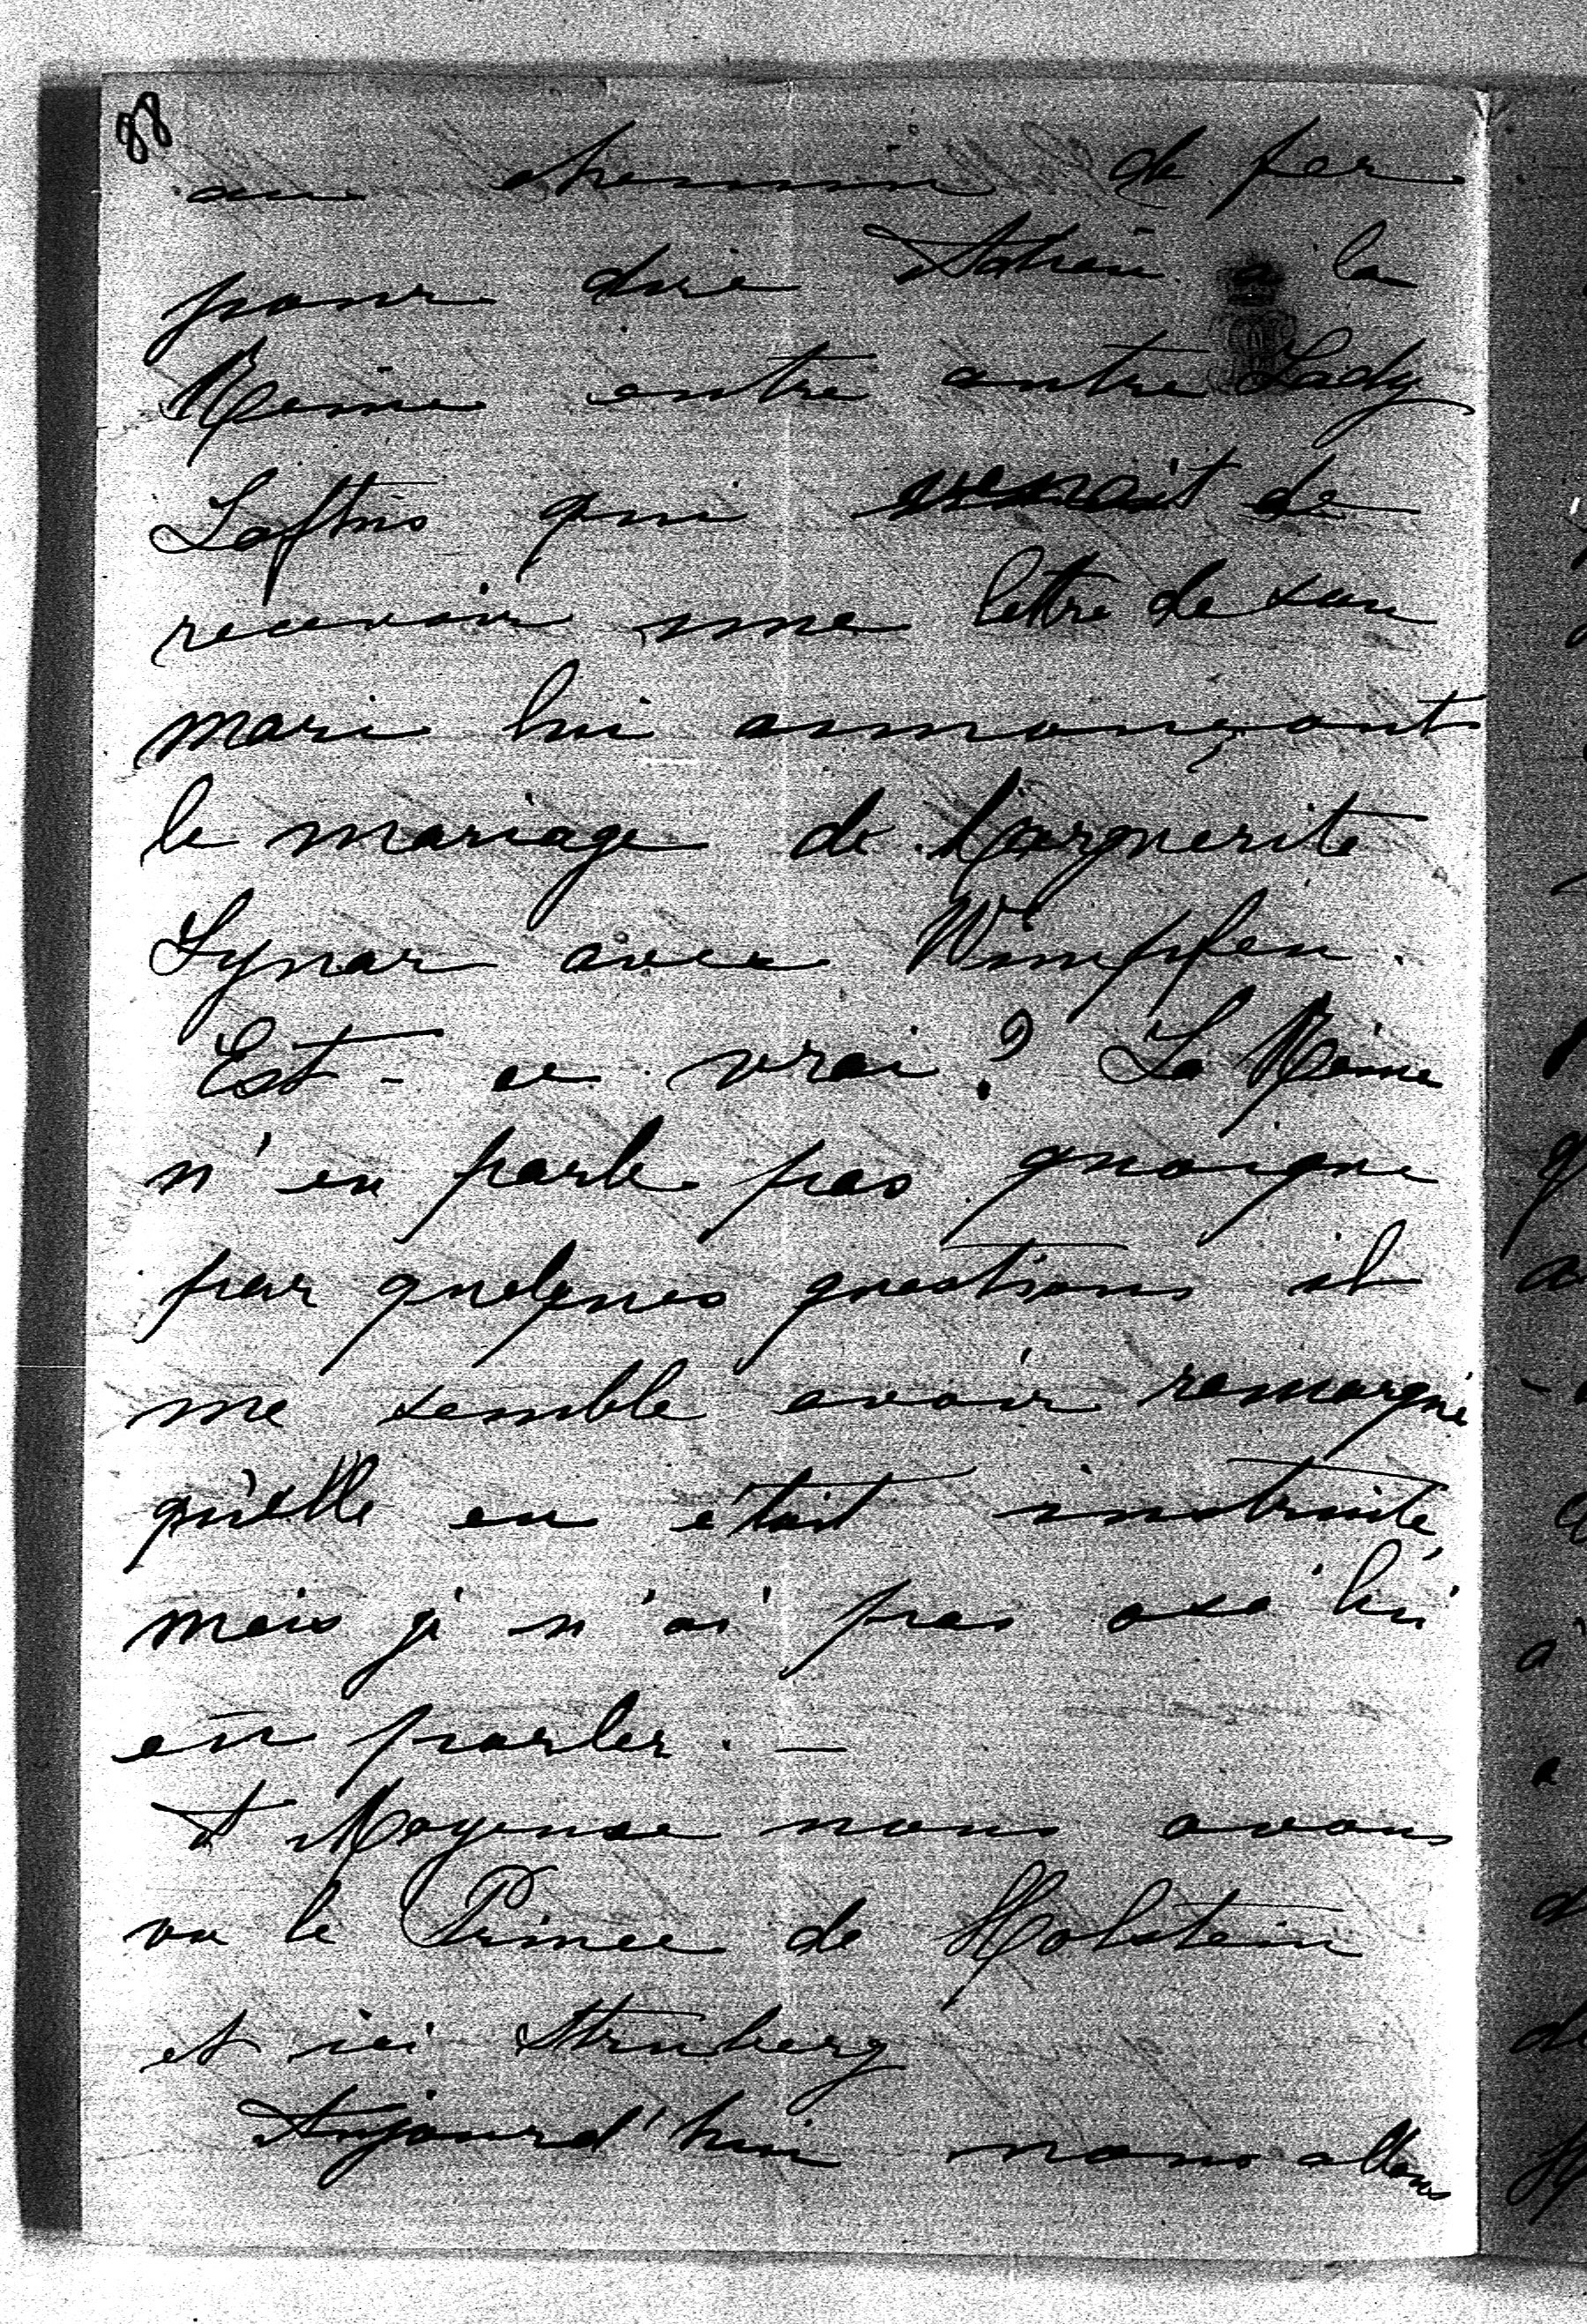 88
au chemin de fer
pour dire Adieu à la
Reine entre autre Lady
Loftus qui venait de
recevoir une lettre de son
mari lui annonçant
le mariage de Marguerite
Lynar avec Wimpffen.
Est-ce vrai? La Reine
n'en parle pas quoique
par quelques questions il
me semble avoir remarqué
qu'elle en était instruite,
mais je n'ai pas osé lui
en parler. —
A Mayence nous avons
vu le Prince de Holstein
et ici Strnberg
Aujourd'hui nous allons